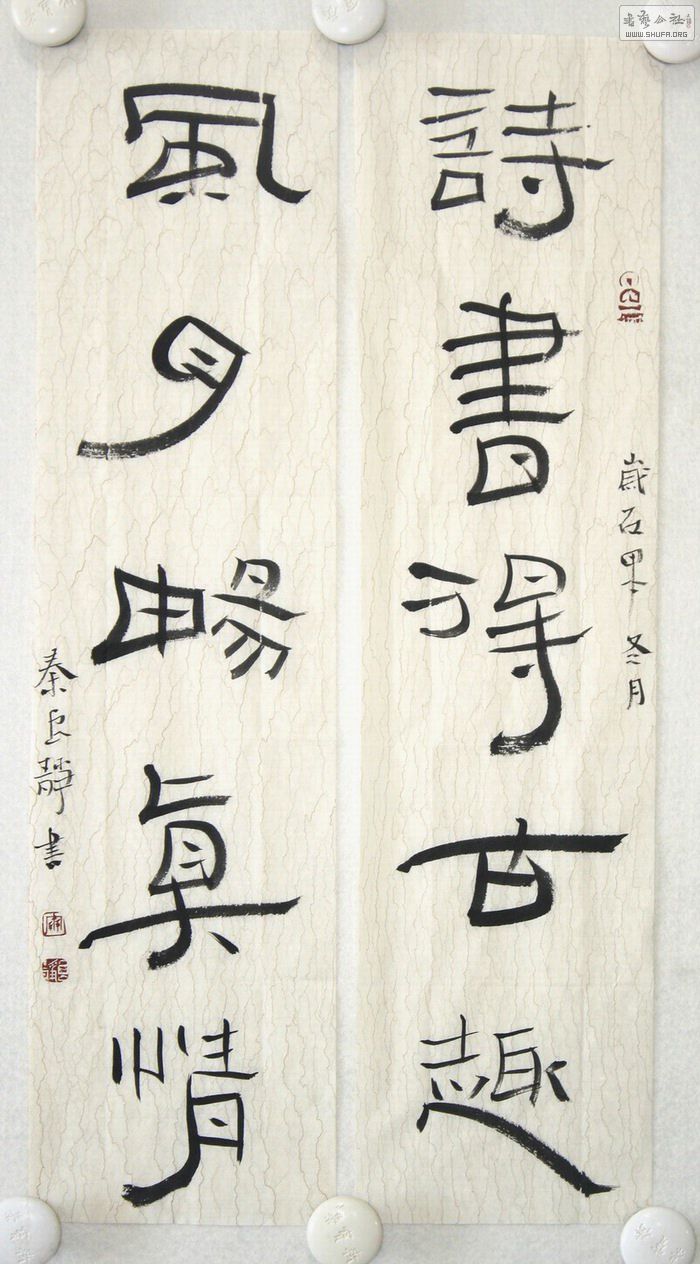 書藝公社
WWW.SHUFA.ORG
歲在冬月
詩書得古趣
風月暢眞情
秦良靜書